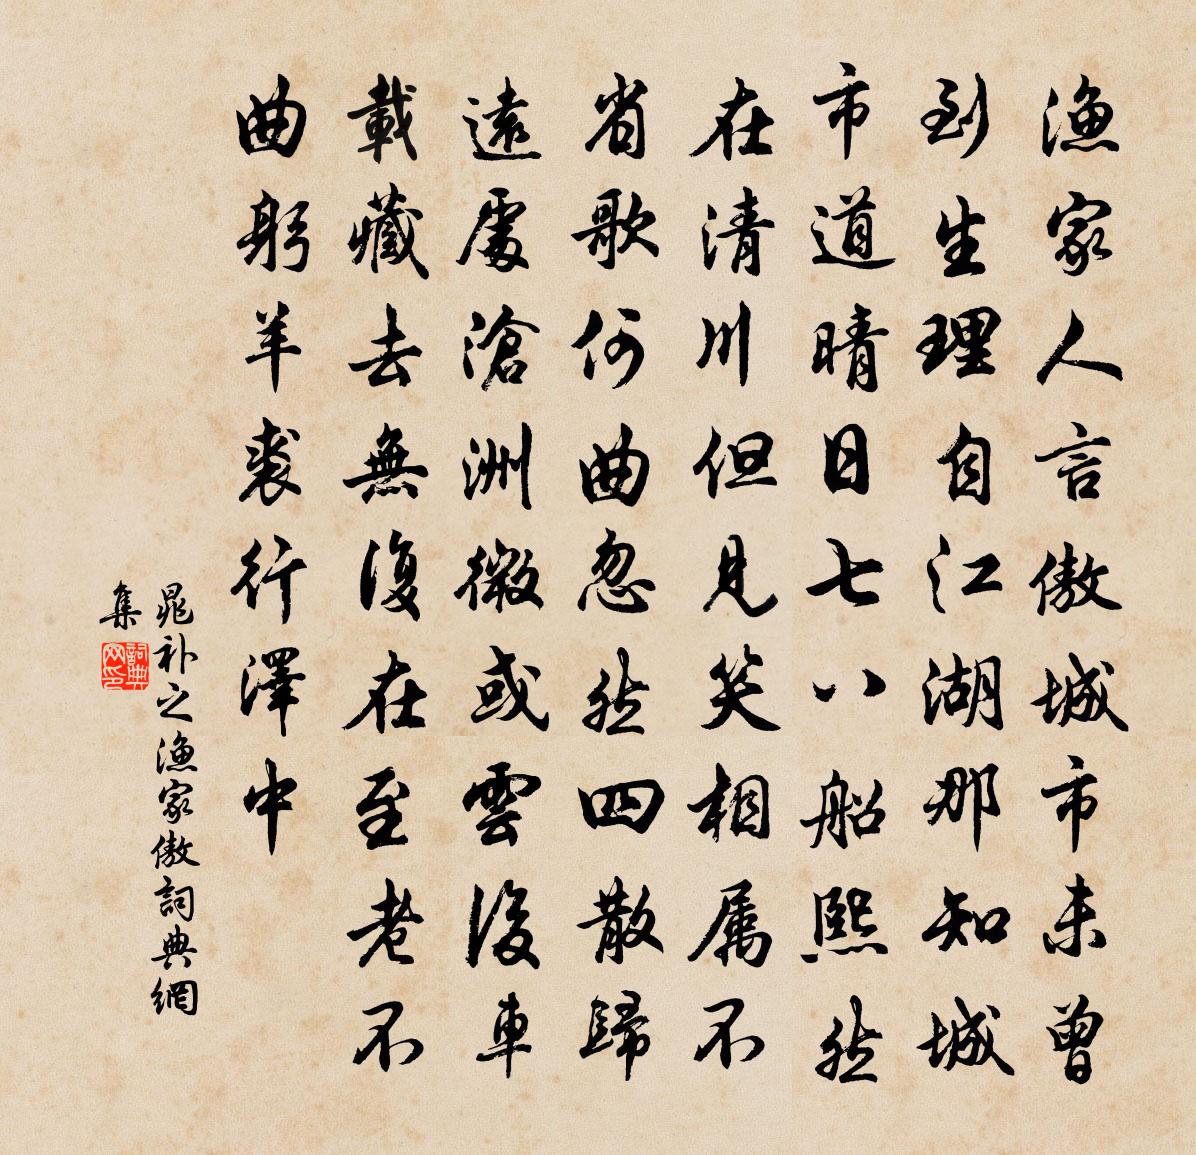 渔家人言傲城市未曾
到生理自江湖那知城
市道晴日七八船熙然
在清川但見笑相属不
省歌何曲忽然四散歸
遠處滄洲微或雲後車
載藏去無復在至老不
曲躬羊裘行澤中
晁补之渔家傲詞典網
集
詞典网印